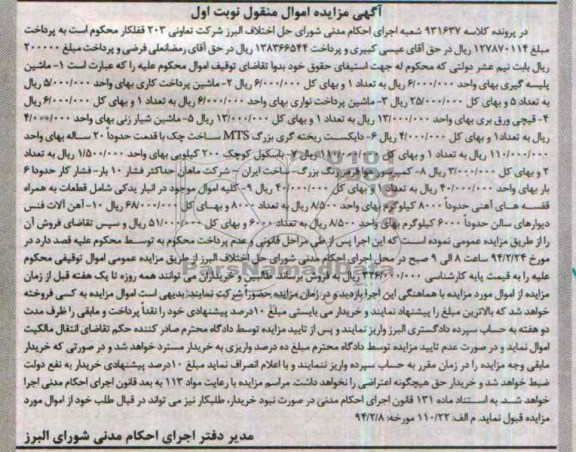 آگهی مزایده اموال منقول نوبت اول
در پرونده کلاسه ۹۳۱۶۳۷ شعبه اجرای احکام مدنی شورای حل اختلاف البرز شرکت تعاونی ۲۰۳ قفلکار محکوم است به پرداخت
مبلغ ۱۲۷۸۷۰۱۱۴ ریال در حق آقای عیسی کبیری و پرداخت ۱۳۸۳۶۶۵۴۴ ریال در حق آقای رمضانعلی فرضی و پرداخت مبلغ ۲۰۰۰۰۰۰
ریال بابت نیم عشر دولتی که محکوم له جهت استیفای حقوق خود بدوا تقاضای توقیف اموال محکوم علیه را که عبارت است ۱- ماشین
پلیسه گیری بهای واحد ۶/۰۰۰/۰۰۰ ریال به تعداد ۱ و بهای کل ۶/۰۰۰/۰۰۰ ریال ۲- ماشین پرداخت کاری بهای واحد ۵/۰۰۰/۰۰۰ ریال
به تعداد ۵ و بهای کل ۲۵/۰۰۰/۰۰۰ ریال ۳- ماشین پرداخت نواری بهای واحد ۶/۰۰۰/۰۰۰ ریال به تعداد ۱ و بهای کل ۶/۰۰۰/۰۰۰ ریال
۴- قیچی ورق بری بهای واحد ۱۳/۰۰۰/۰۰۰ ریال به تعداد ۱ و بهای کل ۱۳/۰۰۰/۰۰۰ ریال ۵- ماشین شیار زنی بهای واحد ۴/۰۰۰/۰۰۰
ریال به تعداد ۱ و بهای کل ۴/۰۰۰/۰۰۰ ریال ۶- دایکست ریخته گری بزرگ MTS ساخت چک با قدمت حدوداً ۲۰ ساله بهای واحد
۱۱۰/۰۰۰/۰۰۰ ریال به تعداد ۱ و بهای کل ۱۱۰/۰۰۰/۰۰۰ ریال ۷- باسکول کوچک ۲۰۰ کیلویی بهای واحد ۱/۵۰۰/۰۰۰ ریال به تعداد
۲ و بهای کل ۳/۰۰۰/۰۰۰ ریال ۸- کمپرسور باد قرمز رنگ بزرگ- ساخت ایران - شرکت ماهان حداکثر فشار ۱۰ بار- فشار کار حدودا ۶
بار بهای واحد ۴۰/۰۰۰/۰۰۰ ریال به تعداد ۱ و بهای کل ۴۰/۰۰۰/۰۰۰ ریال ۹- کلیه اموال موجود در انبار یدکی شامل قطعات به همراه
قفسه های آهنی حدوداً ۸۰۰۰ کیلوگرم بهای واحد ۸/۵۰۰ ریال به تعداد ۸۰۰۰ و بهای کل ۶۸/۰۰۰/۰۰۰ ریال ۱۰- آهن آلات فنس
دیوارهای سالن حدوداً ۶۰۰۰ کیلوگرم بهای واحد ۸/۵۰۰ ریال به تعداد ۶۰۰۰ و بهای کل ۵۱/۰۰۰/۰۰۰ ریال و سپس تقاضای فروش آن
را از طریق مزایده عمومی نموده است که این اجرا پس از طی مراحل قانونی و عدم پرداخت محکوم به توسط محکوم علیه قصد دارد در
مورخ ۹۴/۲/۲۴ ساعت ۸ الی ۹ صبح در محل اجرای احکام مدنی شورای حل اختلاف البرز از طریق مزایده عمومی اموال توقیفی محکوم
علیه را به قیمت پایه کارشناسی ریال به فروش برساند طالبین و خریداران می توانند همه روزه تا یک هفته قبل از زمان
مزایده از اموال مورد مزایده با هماهنگی این اجرا بازدید و در زمان مزایده حضوراً شرکت نمایند. بدیهی است اموال مزایده به کسی فروخته
خواهد شد که بالاترین مبلغ را پیشنهاد نمایند و خریدار می بایستی مبلغ ۱۰درصد پیشنهادی خود را نقداً پرداخت و مابقی را ظرف مدت
دو هفته به حساب سپرده دادگستری البرز واریز نمایند و پس از تایید مزایده توسط دادگاه محترم صادر کننده حکم تقاضای انتقال مالکیت
اموال نماید و در صورت عدم تایید مزایده توسط دادگاه محترم مبلغ ده درصد واریزی به خریدار مسترد خواهد شد و در صورتی که خریدار
مابقی وجه مزایده را در زمان مقرر به حساب سپرده واریز ننمایند و با اعلام انصراف نماید مبلغ ۱۰درصد پیشنهادی خریدار به نفع دولت
ضبط خواهد شد و خریدار حق هیچگونه اعتراضی را نخواهد داشت. مراسم مزایده با رعایت مواد ۱۱۳ به بعد قانون اجرای احکام مدنی اجرا
خواهد شد. به استناد ماده ۱۳۱ قانون اجرای احکام مدنی در صورت نبود خریدار، طلبکار نیز می تواند در قبال طلب خود از اموال مورد
مزایده قبول نماید. م الف: ۱۱۰/۲۲ مورخه: ۹۴/۲/۸
مدیر دفتر اجرای احکام مدنی شورای البرز
ParsNamadData